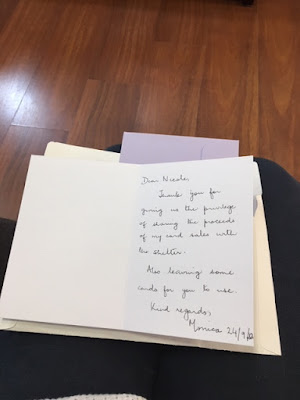 Dear Nicole,
Thank you for
giving us the privilege
of sharing the proceeds
of my card sales with
the shelter.
Also leaving some
cards for you to use.
Kind regards,
Monica